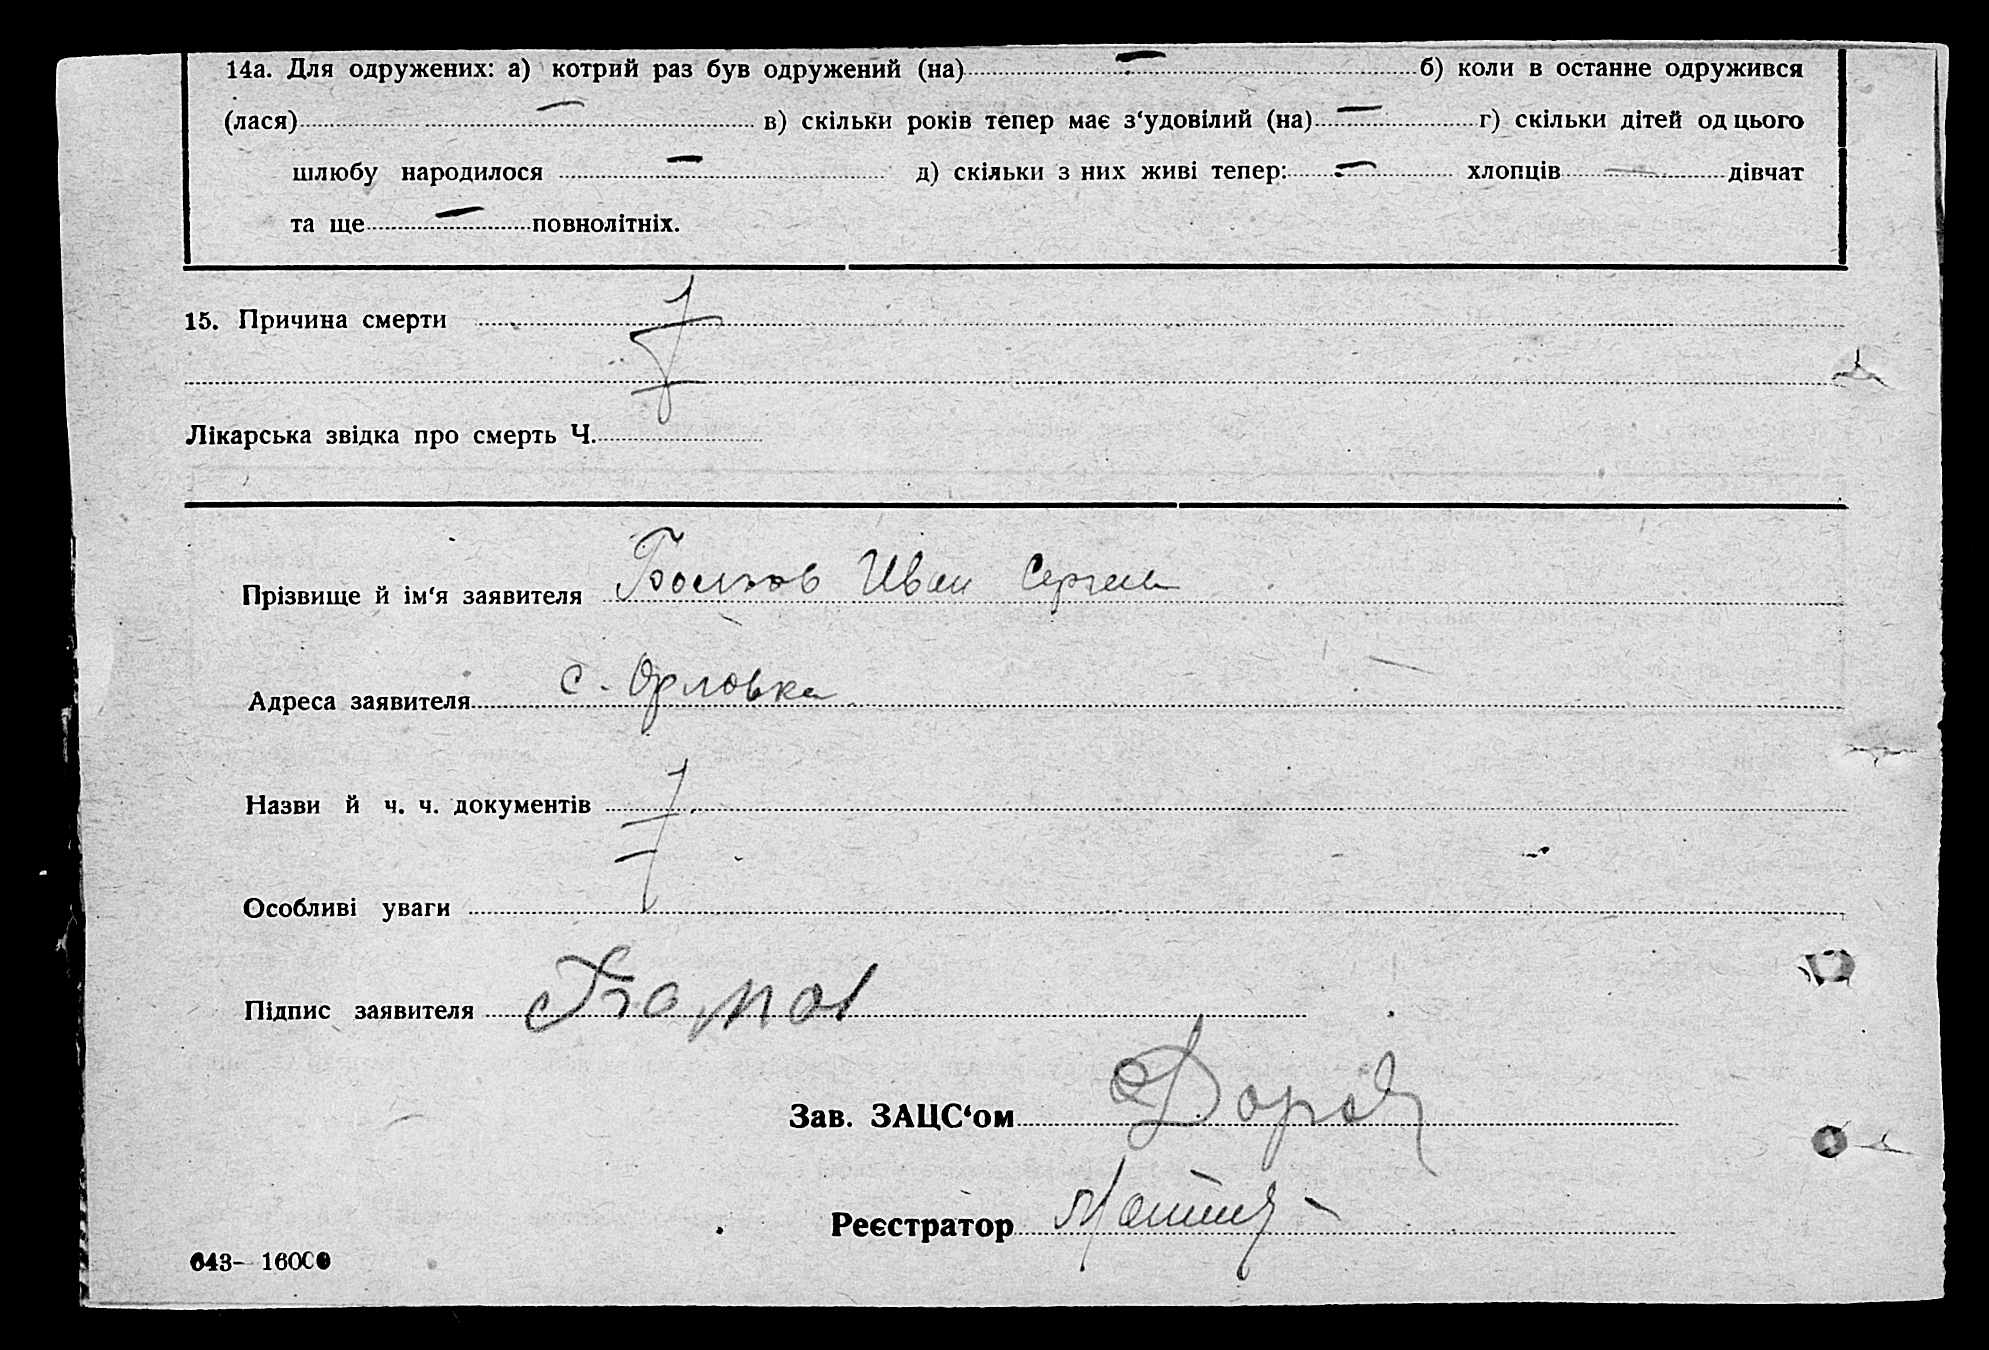 14а. Для одружених: а) котрий раз був одружений (на) — б) коли в останнє одружився
(лася) — в) скільки років тепер має з‘удовілий (на) — г) скільки дітей од цього
шлюбу народилося — д) скільки з них живі тепер: — хлопців — дівчат
та ще — повнолітніх.
15. Причина смерти
Лікарська звідка про смерть Ч.
Прізвище й ім‘я заявителя Иван
Адреса заявителя с. Орловка
Назви й ч. ч. документів
Особливі уваги
Підпис заявителя
Зав. ЗАЦС‘ом
Реєстратор
643– 16000